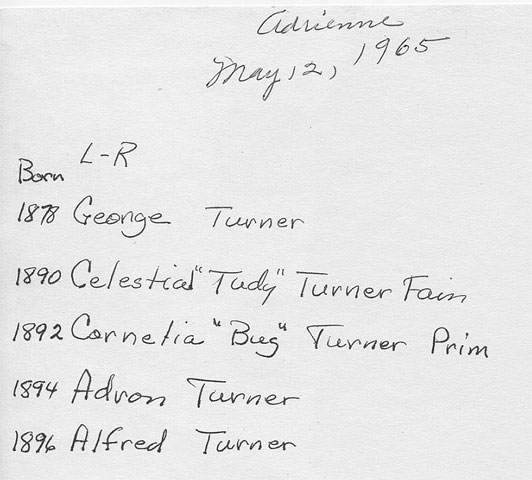 Adrienne
May 12, 1965
L-R
Born
1878 George Turner
1890 Celestial "Tudy" Turner Fain
1892 Cornelia "Bug" Turner Prim
1894 Advon Turner
1896 Alfred Turner